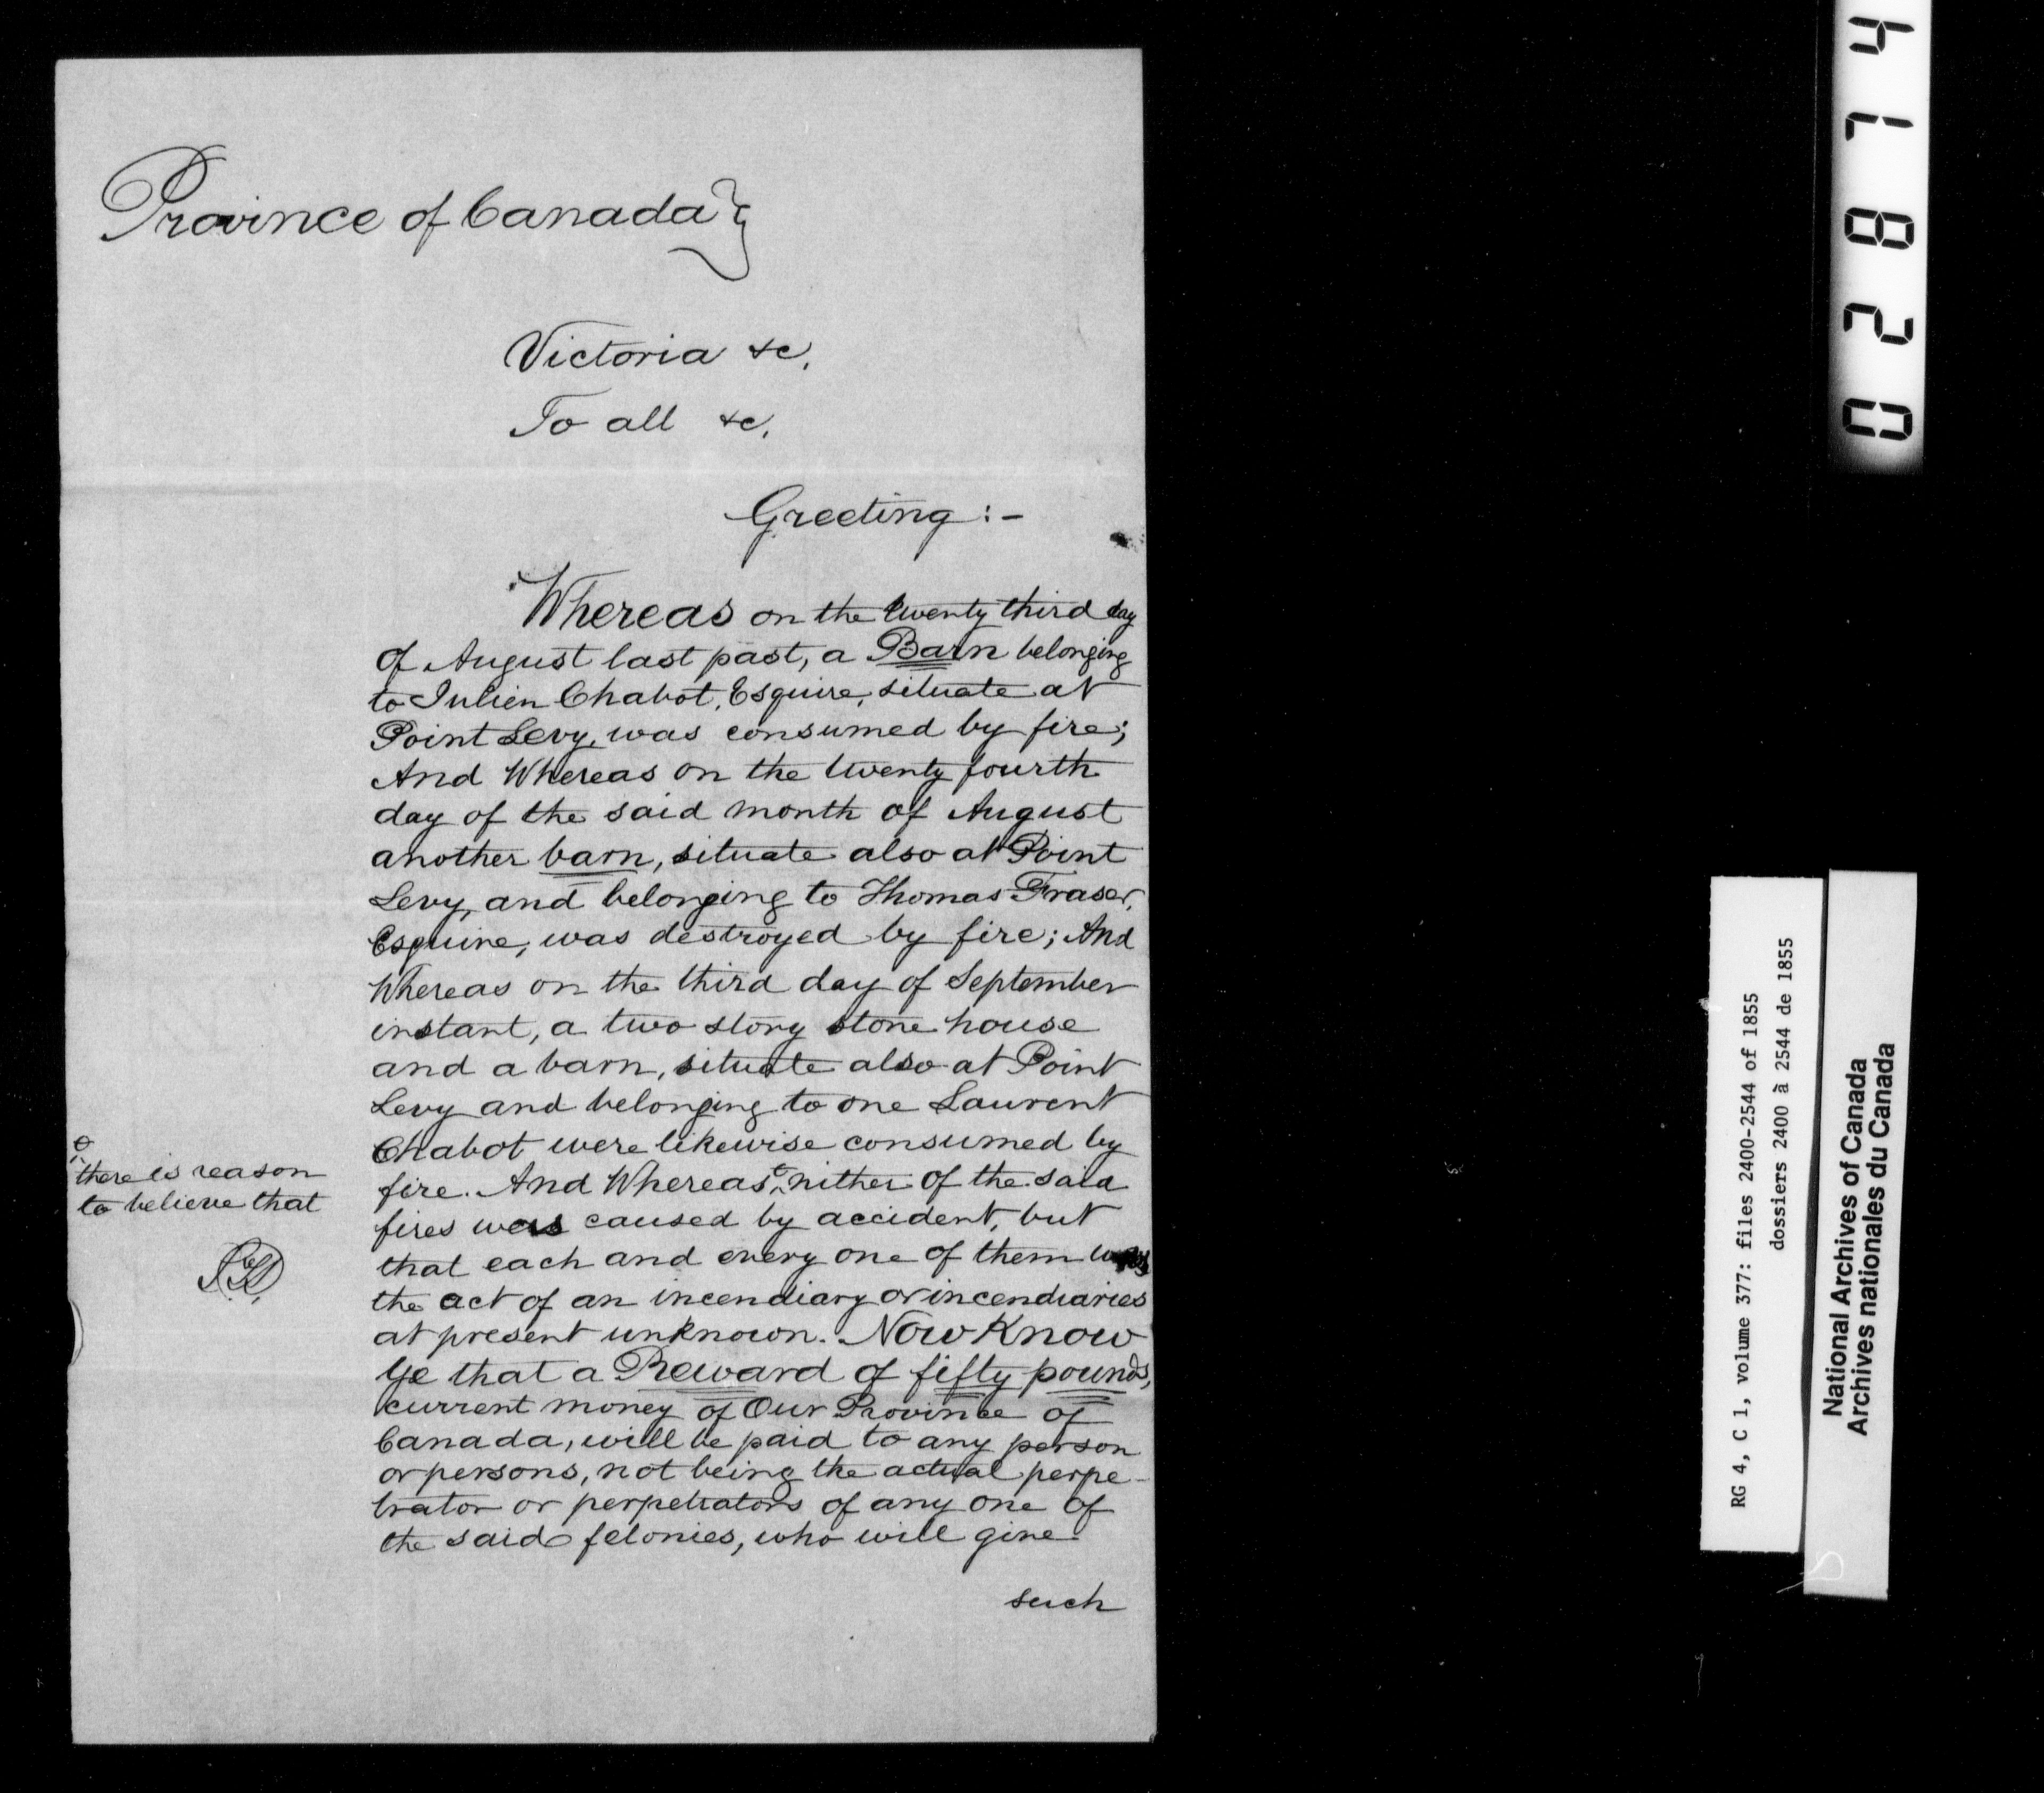 Province of Canada }
Victoria &c.
To all &c.
Greeting :-
Whereas on the twenty third day
of August last past, a Barn belonging
to Julien Chabot, Esquire, situate at
Point Levy, was consumed by fire;
And Whereas on the twenty fourth
day of the said month of August
another barn, situate also at Point
Levy, and belonging to Thomas Fraser,
Esquire, was destroyed by fire; And
Whereas on the third day of September
instant, a two story stone house
and a barn, situate also at Point
Levy and belonging to one Laurent
Chabot were likewise consumed by
fire. And Whereas nither of the said
there is reason
to believe that
fires was caused by accident, but
that each and every one of them was
the act of an incendiary or incendiaries
at present unknown. Now Know
Ye that a Reward of fifty pounds,
current money of Our Province of
Canada, will be paid to any person
or persons, not being the actual perpe-
trator or perpetrators of any one of
the said felonies, who will give
such
02874
RG 4, C 1, volume 377: files 2400-2544 of 1855
dossiers 2400 à 2544 de 1855
National Archives of Canada
Archives nationales du Canada